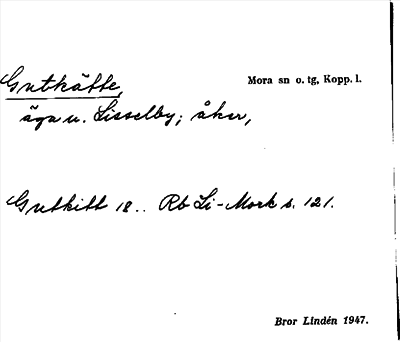 Gutkätte,
Mora sn o. tg, Kopp. l.
äga u. Lisselby; åker,
Gutkitt 18.. Rb Li-Mork s. 121.
Bror Lindén 1947.